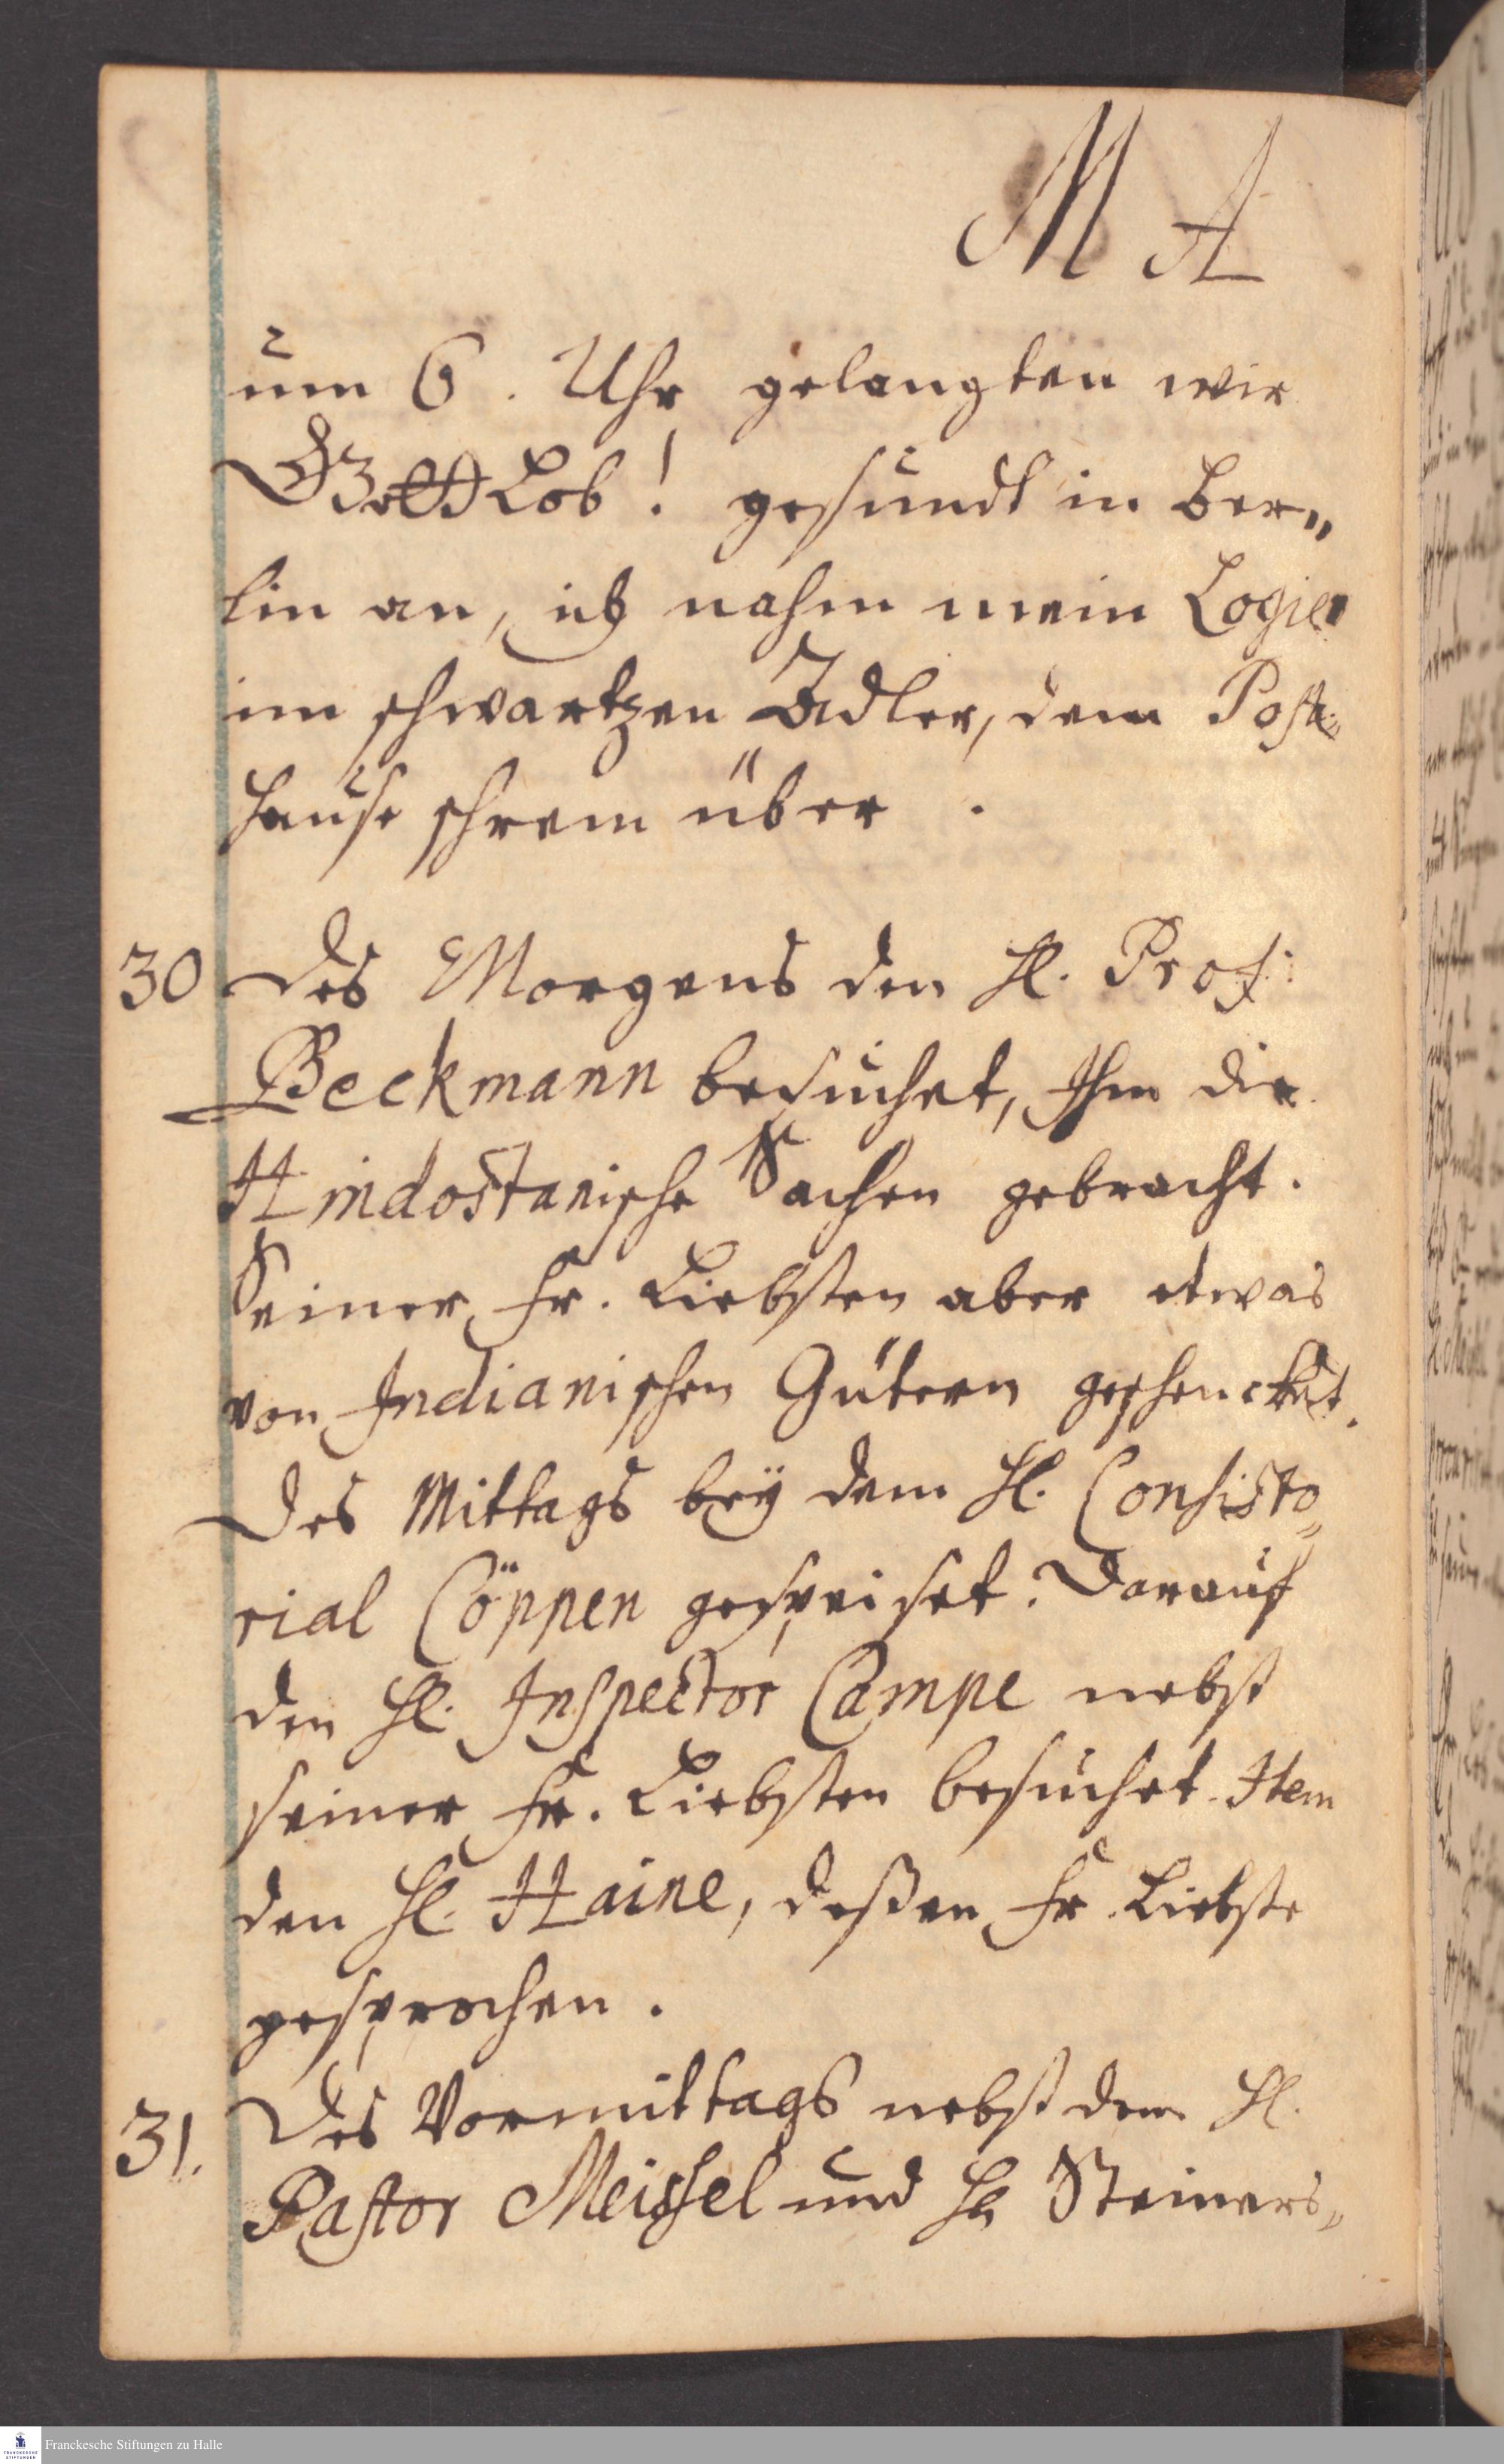 M A
um 6. Uhr gelangten wir
Gott Lob! gesundt in Ber„
lin an, ich nahm mein Logie
im schwartzen Adler, dem Post„
hause schrem über.
30 Des Morgens den H. Prof:
Beckmann besuchet, Ihm die
Hindostanische Sachen gebracht.
Seiner Fr. Liebsten aber etwas
von Indianischen Gütern geschencket.
Des Mittags bey dem H. Consisto„
rial Cöppen gespeiset. Darauf
den H. Inspector Campe nebst
seiner Fr. Liebsten besuchet. Item
den H. Haine, deßen Fr. Liebste
gesprochen.
31. Des Vormittags nebst dem H.
Pastor Meissel und H Steiners„
Franckesche Stiftungen zu Halle